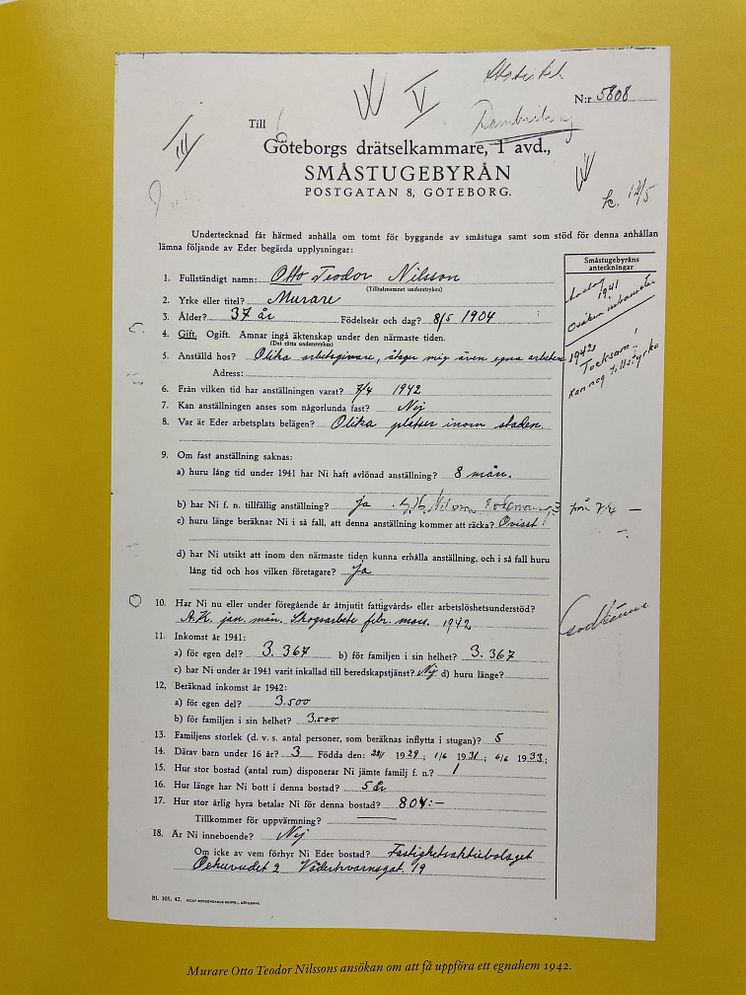 N:r 5808
Till
Göteborgs drätselkammare, 1 avd.,
SMÅSTUGEBYRÅN
POSTGATAN 8, GÖTEBORG.
III
V
k. 12/5
Undertecknad får härmed anhålla om tomt för byggande av småstuga samt som stöd för denna anhållan
lämna följande av Eder begärda upplysningar:
Småstugebyråns
anteckningar
1. Fullständigt namn: Otto Teodor Nilsson
(Tilltalsnamnet understrykes)
2. Yrke eller titel? Murare
3. Ålder? 37 år Födelseår och dag? 8/5 1904
4. Gift. Ogift. Ämnar ingå äktenskap under den närmaste tiden.
(Det rätta understrykes)
5. Anställd hos? Olika arbetsgivare, åtager mig även egna arbeten
Adress:
6. Från vilken tid har anställningen varat? 7/4 1942
7. Kan anställningen anses som någorlunda fast? Nej
8. Var är Eder arbetsplats belägen? Olika platser inom staden
1941
1942
9. Om fast anställning saknas:
a) huru lång tid under 1941 har Ni haft avlönad anställning? 8 mån.
b) har Ni f. n. tillfällig anställning? Ja Nilsson från 7/4 —
c) huru länge beräknar Ni i så fall, att denna anställning kommer att räcka? Ovisst
d) har Ni utsikt att inom den närmaste tiden kunna erhålla anställning, och i så fall huru
lång tid och hos vilken företagare? Ja
10. Har Ni nu eller under föregående år åtnjutit fattigvårds- eller arbetslöshetsunderstöd?
A.K. jan. mån. Skogsarbete febr. mars. 1942
godkännes
11. Inkomst år 1941:
a) för egen del? 3.367 b) för familjen i sin helhet? 3.367
c) har Ni under år 1941 varit inkallad till beredskapstjänst? Nej d) huru länge?
12. Beräknad inkomst år 1942:
a) för egen del? 3.500
b) för familjen i sin helhet? 3.500
13. Familjens storlek (d. v. s. antal personer, som beräknas inflytta i stugan)? 5
14. Därav barn under 16 år? 3 Födda den: 1929; 1/6 1931; 6/6 1933;
15. Hur stor bostad (antal rum) disponerar Ni jämte familj f. n.? 1
16. Hur länge har Ni bott i denna bostad? 5 år
17. Hur stor årlig hyra betalar Ni för denna bostad? 804:—
Tillkommer för uppvärmning? —
18. Är Ni inneboende? Nej
Om icke av vem förhyr Ni Eder bostad? Fastighetsaktiebolaget
Oxhuvudet 2 Väderkvarnsgat. 19
Bl. 105. 42.
Murare Otto Teodor Nilssons ansökan om att få uppföra ett egnahem 1942.